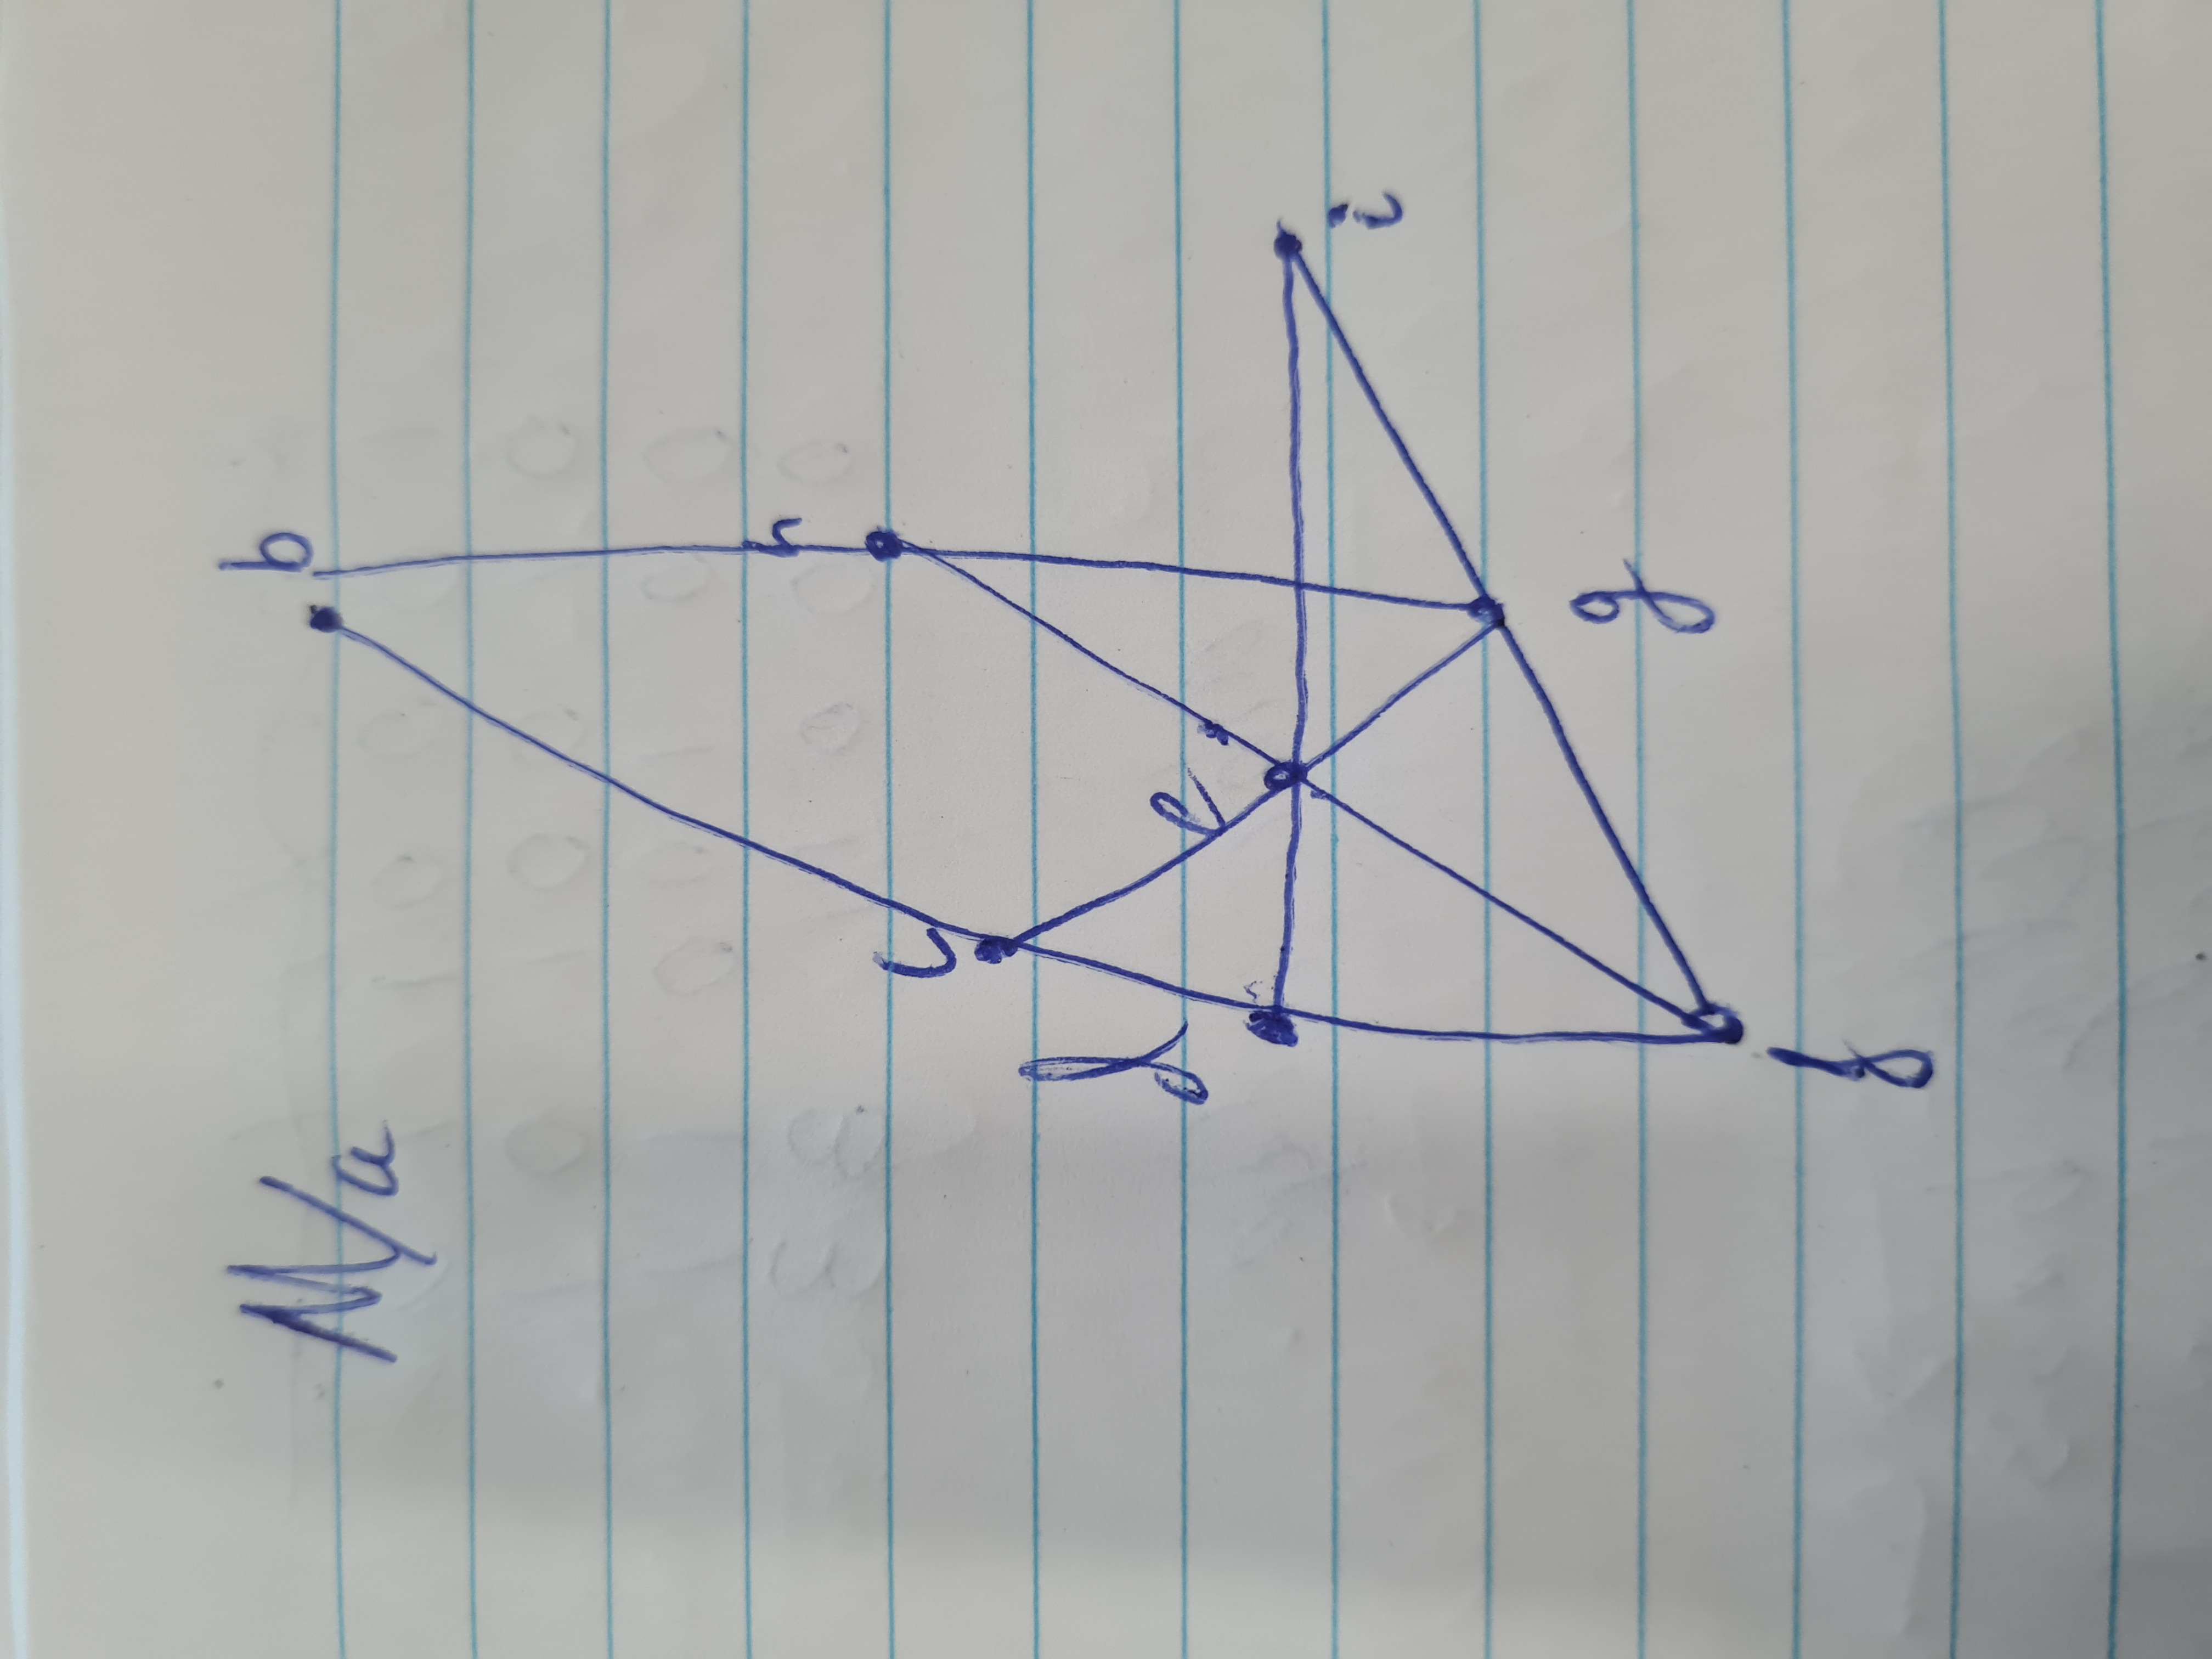 M/a
b
h
c
d
e
i
g
f